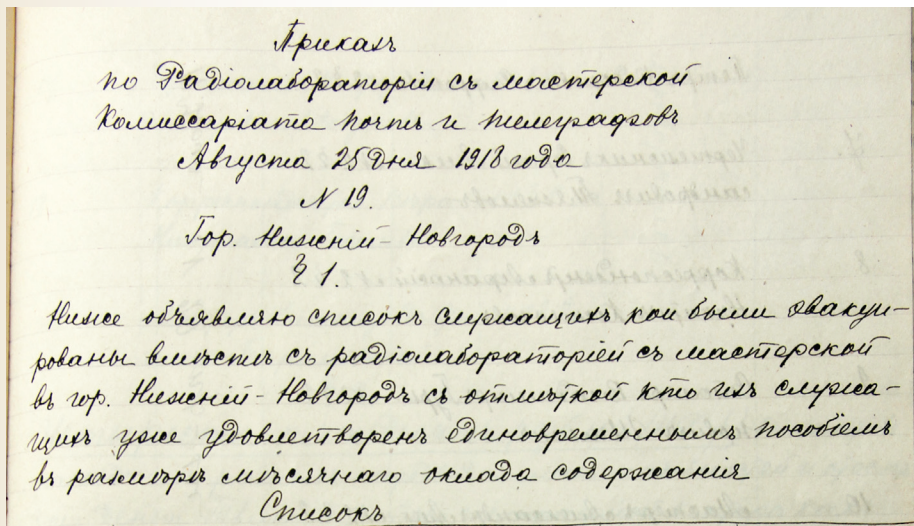 Приказъ
по Радіолабораторіи съ мастерской
Комиссаріата почтъ и телеграфовъ
Августа 25 дня 1918 года
N 19.
Гор. Нижній-Новгородъ
§ 1.
Ниже объявляю списокъ служащихъ кои были эвакуи-
рованы вмѣстѣ съ радіолабораторіей съ мастерской
въ гор. Нижній-Новгородъ съ отмѣткой кто ихъ служа-
щихъ уже удовлетворенъ единовременнымъ пособіемъ
въ размѣрѣ мѣсячнаго оклада содержанія
Списокъ